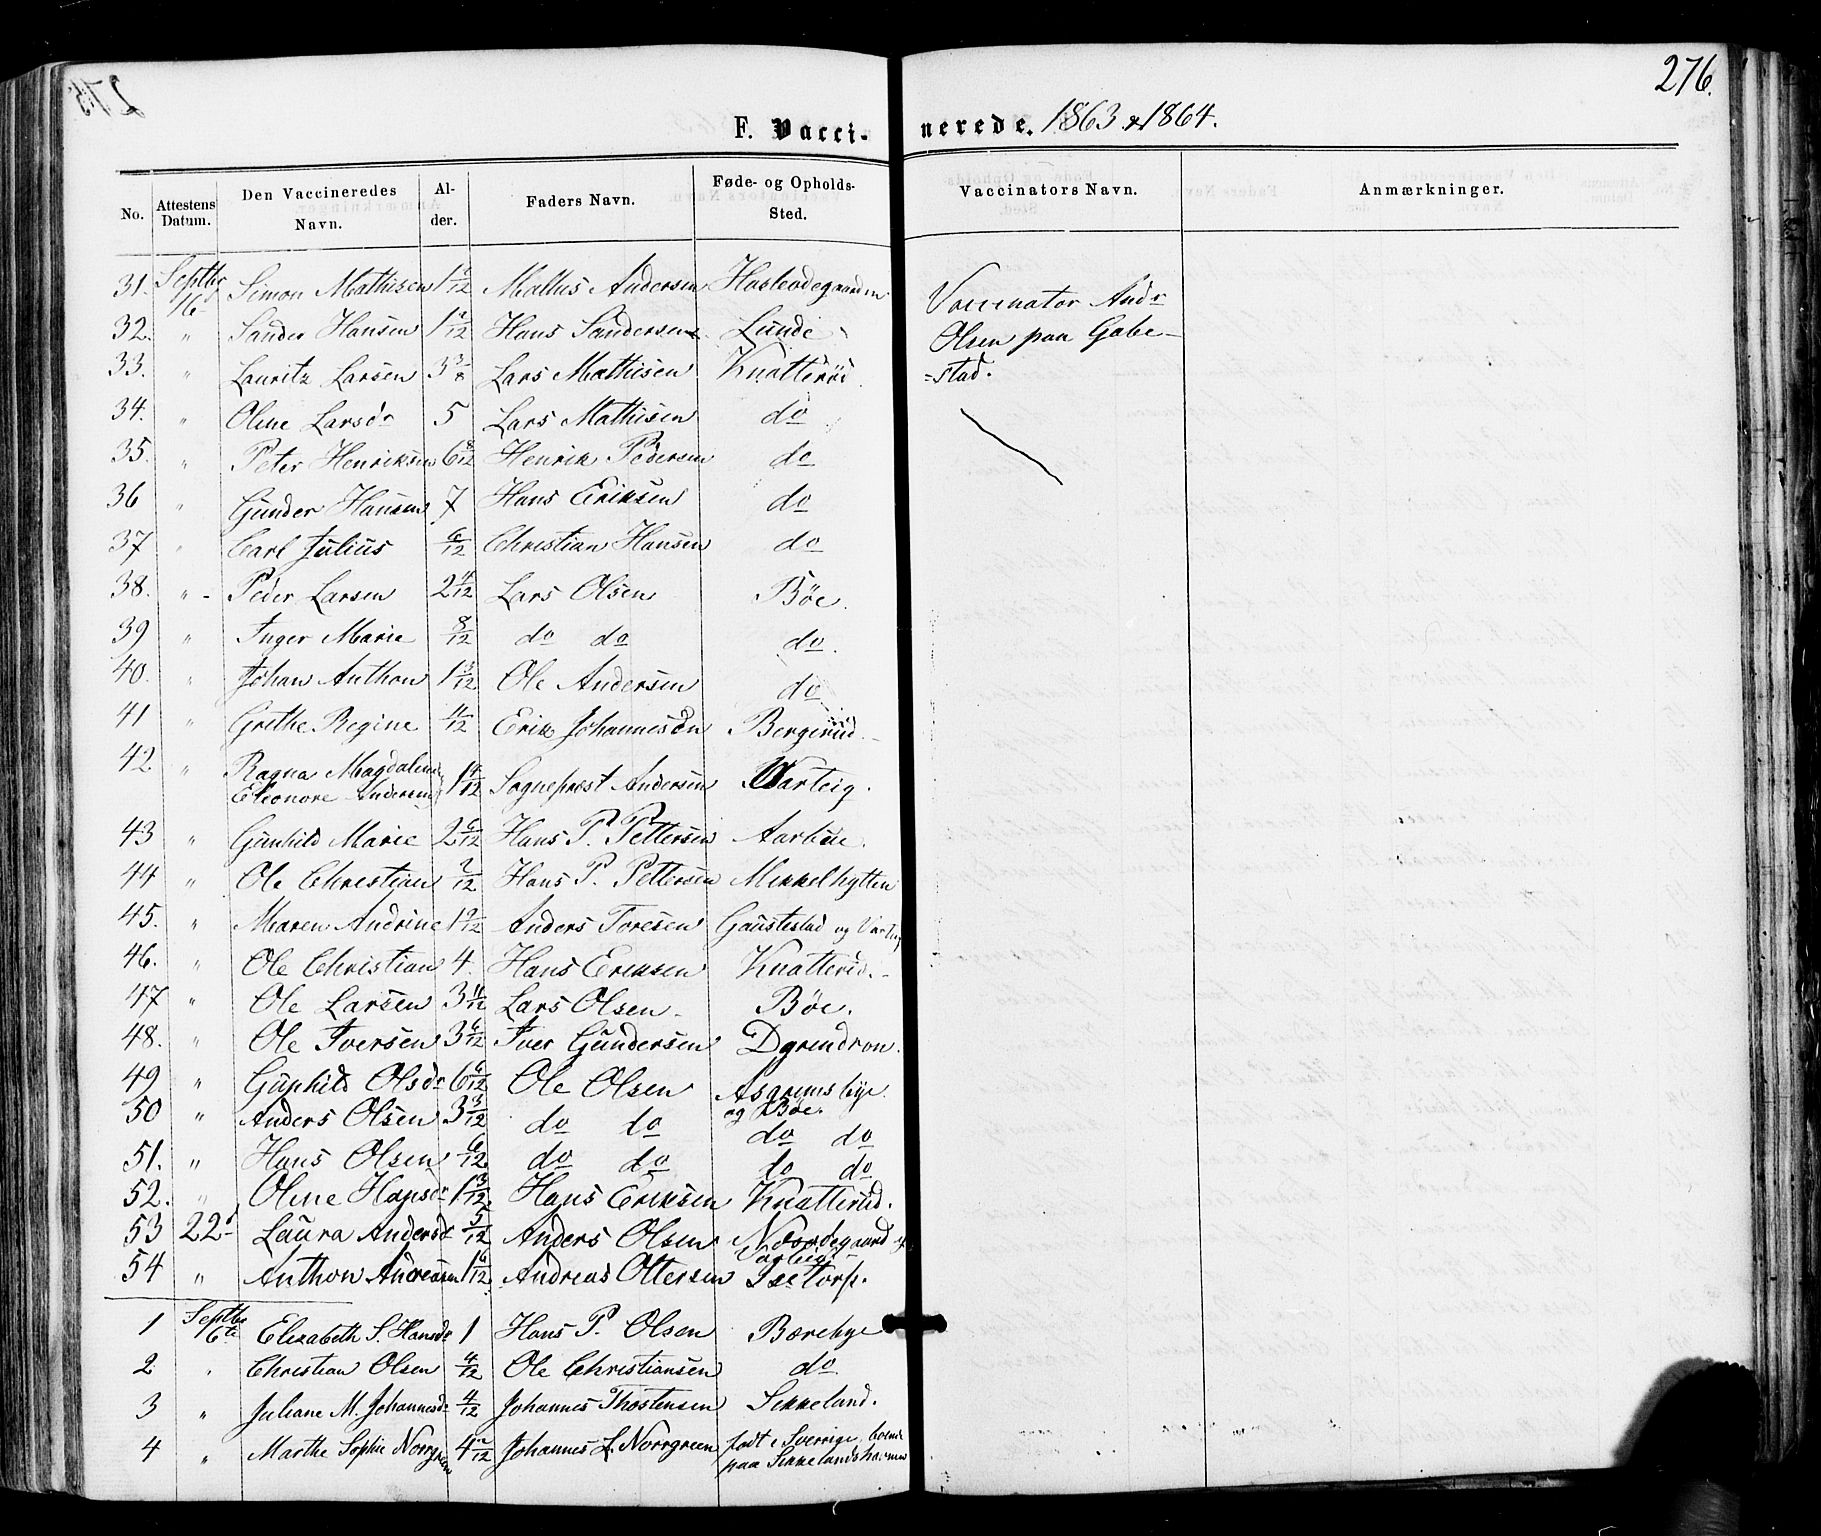 276.
F. Vacci- nerede. 1863 & 1864.
No. Attestens Datum. Den Vaccineredes Navn. Al- der. Faders Navn. Føde- og Opholds- Sted. Vaccinators Navn. Anmærkninger.
31. Septbr 16 Simon Mathisen 1 /12 Mathis Andersen Vaccinator Andr
32. " Sander Hansen 1 /12 Hans Sandersen Lunde Olsen paa Gabe-
33. " Lauritz Larsen 3 3/8 Lars Mathisen Knatterød -stad.
34. " Oline Larsdr 5 Lars Mathisen do
35. " Peter Henriksen 6 8/12 Henrik Pedersen do
36 " Gunder Hansen 7 Hans Eriksen do
37 " Carl Julius 6/12 Christian Hansen do
38. " Peder Larsen 2 4/12 Lars Olsen Bøe.
39 " Inger Marie 8/12 do do do.
40. " Johan Anthon 1 3/12 Ole Andersen do
41 " Grethe Regine 4/12 Erik Johannesen Bergerud.
42 " Ragna Magdalene
Eleonore Andersen 1 4/12 Sogneprest Andersen Varteig.
43 " Gunhild Marie 2 6/12 Hans P. Pettersen
44 " Ole Christian 2/12 Hans P. Pettersen Mikkelhytten
45. " Maren Andrine 1 9/12 Anders Toresen Gaustestad og Varteig
46. " Ole Christian 4. Hans Eriksen Knatterid.
47 " Ole Larsen 3 11/12 Lars Olsen Bøe.
48. " Ole Iversen 3 6/12 Iver Gundersen
49 " Gunhild Olsdr 6 6/12 Ole Olsen Asgrimsbye
50 " Anders Olsen 3 3/12 do do og Bøe. do do
51. " Hans Olsen 6/12 do do do do
52. " Oline Hansdr 1 3/12 Hans Eriksen Knatterud.
53 22d Laura Andersd 5/12 Anders Olsen Næsodegaard
Varteig
54 " Anthon Andreasen 1 6/12 Andreas Ottersen Isetorp.
1 Septbr 6te Elizabeth S. Hansdr 1 Hans P. Olsen Bærebye
2 " Christian Olsen 4/12 Ole Christiansen do
3 " Juliane M. Johannesdr 4/12 Johannes Thostensen Sikkeland.
4 " Marthe Sophie Norrgren 4 2/12 Johannes L. Norrgreen født i Sverrige, boende
paa Sikkelandshavnen